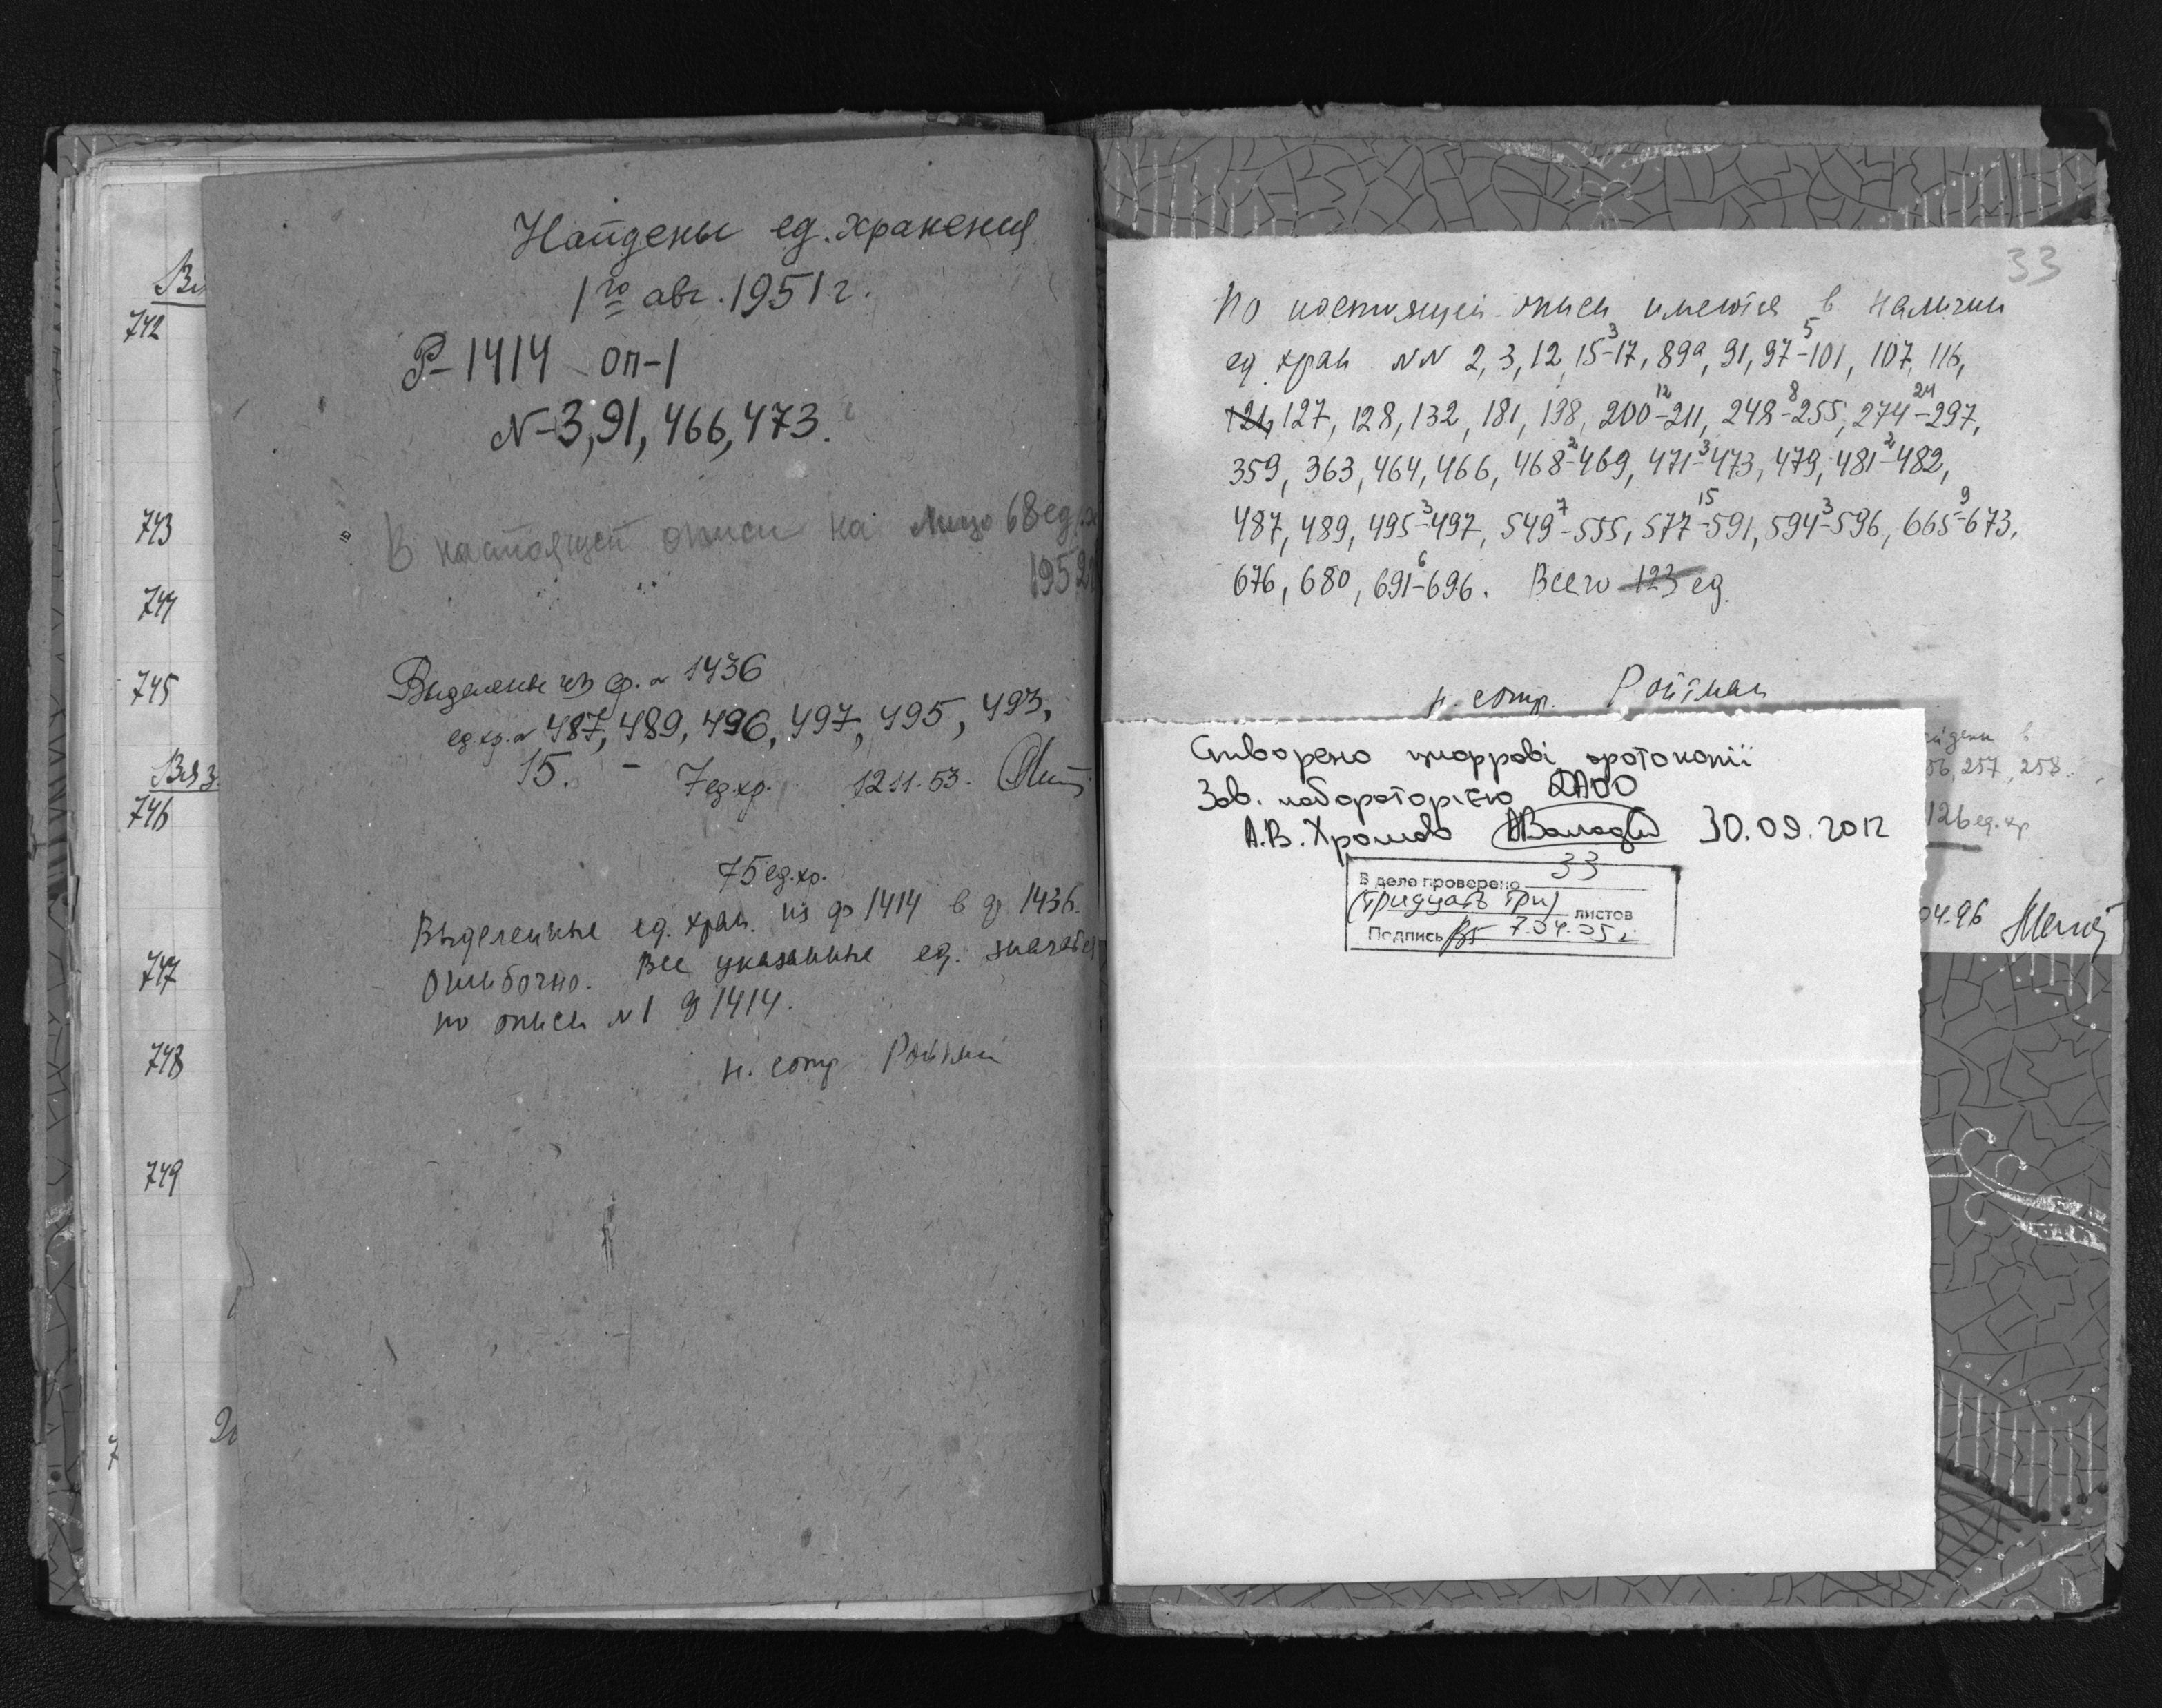 Вяз
742
743
744
745
Вяз
746
747
748
749
Найдены ед. хранения
1го авг. 1951 г.
Р-1414 оп-1
N-3, 91, 466, 473.
В настоящей описи на лицо 68 ед.
1952
Выделены из ф. N 1436
ед.хр. N 487, 489, 496, 497, 495, 493,
15. – 7 ед.хр. 12 11. 53.
75 ед.хр.
Выделенные ед. хран. из ф 1414 в ф 1436
ошибочно. Все указанные ед. значатся
по описи N 1 ф 1414.
н. сотр Ройтман
33
По настоящей описи имеются в наличии
ед хран NN 2, 3, 12, 15-³17, 89а, 91, 97-⁵101, 107, 116,
121, 127, 128, 132, 181, 198, 200-¹²211, 248-⁸255, 274-²⁴297,
359, 363, 464, 466, 468-²469, 471-³473, 479, 481-²482,
487, 489, 495-³497, 549-⁷555, 577-¹⁵591, 594-³596, 665-⁹673,
676, 680, 691-⁶696. Всего 123 ед.
н. сотр. Ройтман
56, 257, 258.
126 ед. хр
04.96
Створено цифрові фотокопії
Зав. лабораторією ДАОО
А.В. 30.09.2012
В деле проверено 33
(тридцать три) листов
Подпись 7.04.05 г